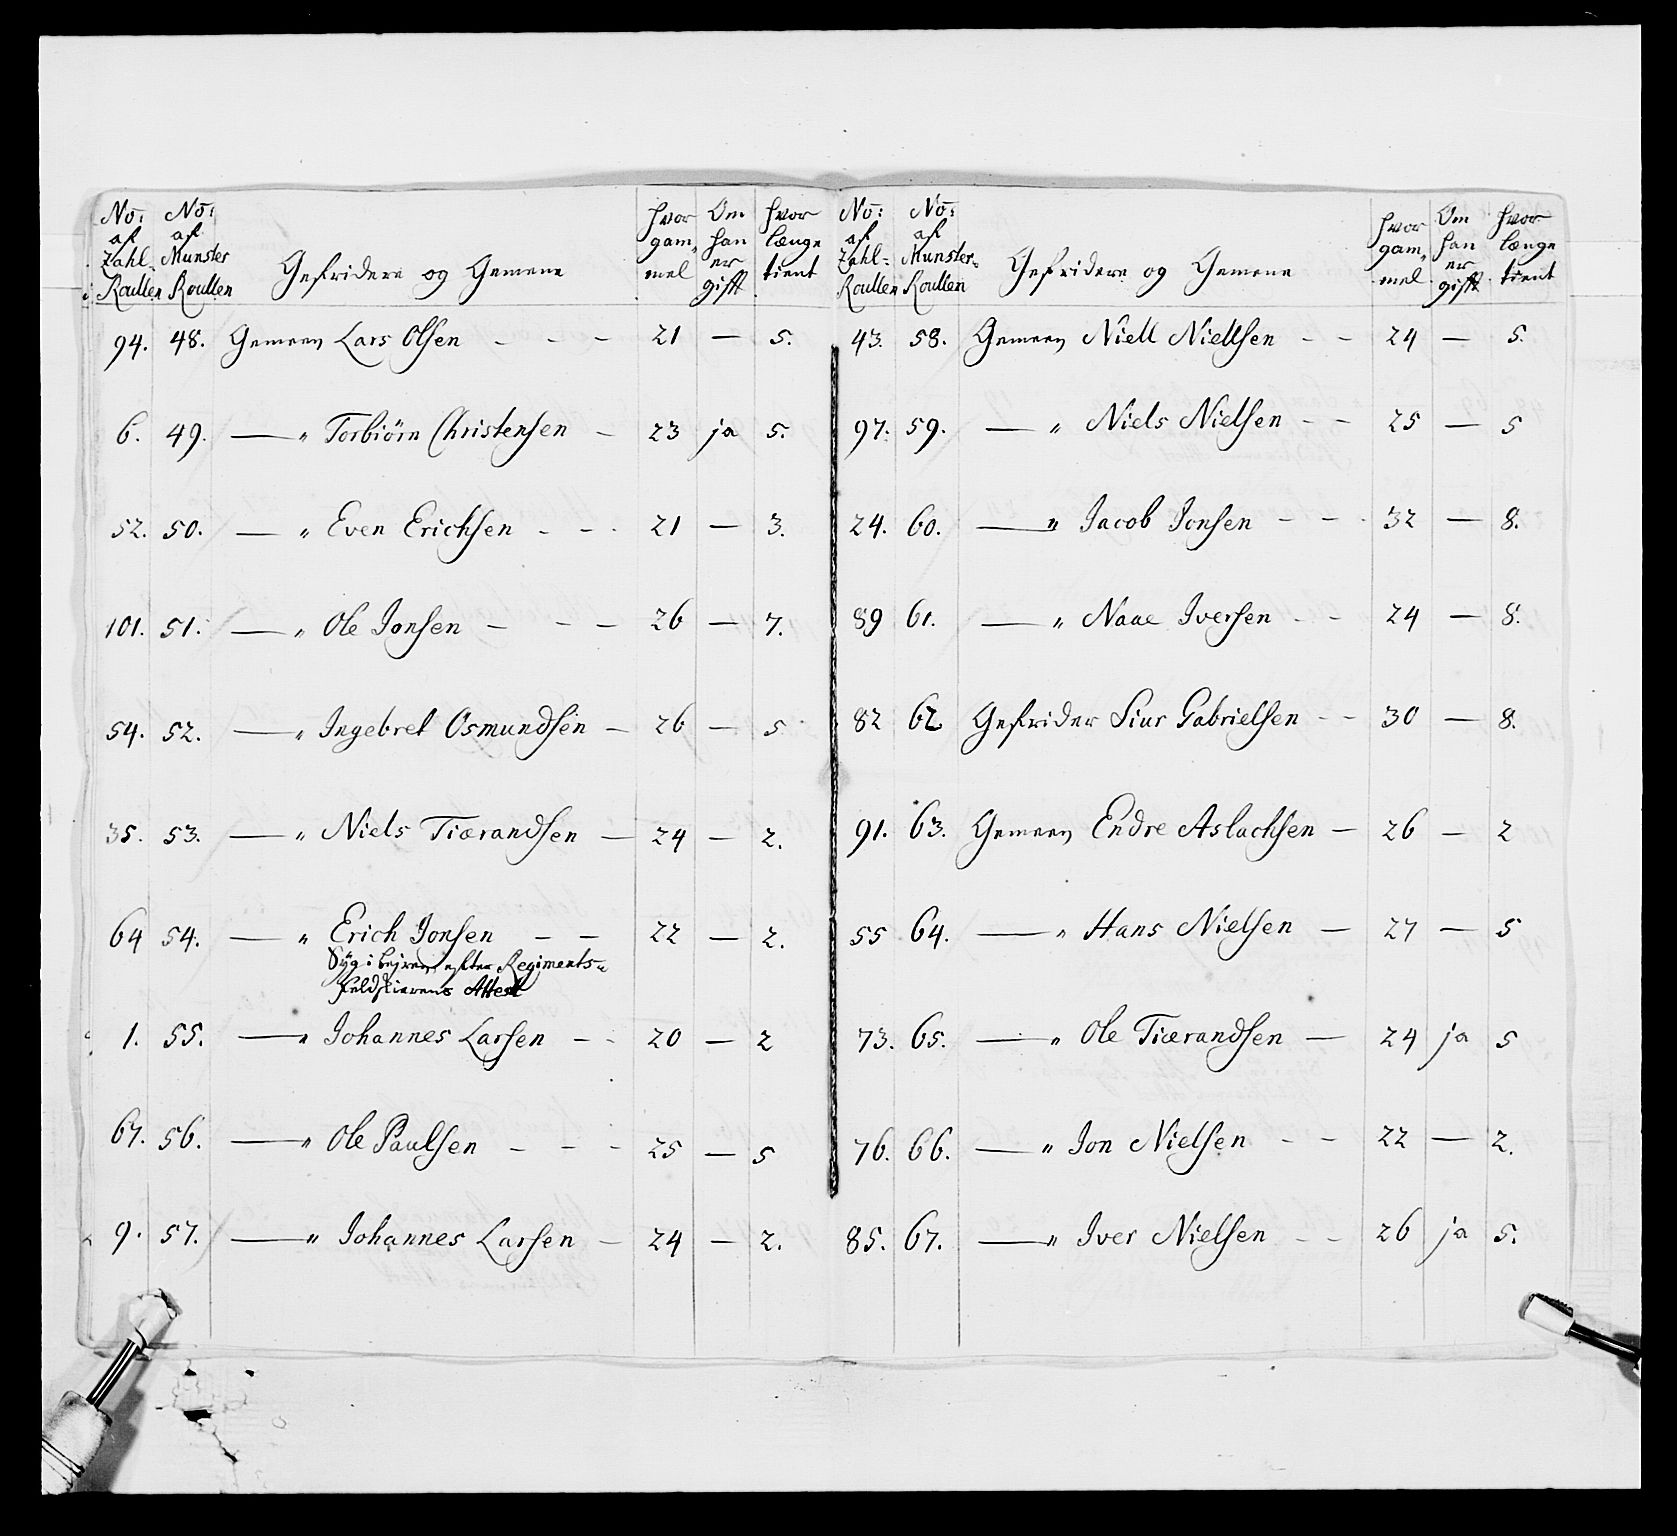 No: af Zahl Roullen No: af Munster Roullen Gefridere og Gemene hvor gam„ mel Om han er gift hvor længe tient
94. 48. Gemeen Lars Olsen - - - 21 — 5.
6. 49. — „ Torbiörn Christensen - 23 ja 5.
52. 50. — „ Even Erichsen - - - 21 — 3.
101. 51. — „ Ole Jonsen - - - 26 — 7.
54. 52. — „ Ingebret Osmundsen - 26 — 5
35. 53. — „ Niels Tiærandsen — 24 — 2.
64 54. — „ Erich Jonsen - - 22 — 2.
Syg i Lejren efter Regiments-
Feldskierens Attest
1. 55. — „ Johannes Larsen - - 20 — 2
67. 56. — „ Ole Paulsen - - - 25 — 5
9. 57. — „ Johannes Larsen - 24 — 2.
No: af Zahl- Roullen No: af Munster- Roullen Gefridere og Gemene hvor gam„ mel Om han er gift hvor længe tient
43. 58. Gemeen Niell Niellsen - - 24 — 5.
97. 59. — „ Niels Nielsen - - 25 — 5
24. 60. — „ Jacob Jonsen - - - 32 — 8.
89 61. — „ Naae Iversen - - 24 — 8.
82 62 Gefrider Siur Gabrielsen - - 30 — 8.
91. 63. Gemeen Endre Aslachsen — 26 — 2
55 64. — „ Hans Nielsen — 27 — 5
73. 65. — „ Ole Tiærandsen — 24 ja 5
76. 66. — „ Jon Nielsen - - 22 — 2.
85. 67. — „ Iver Nielsen - - 26 ja 5.